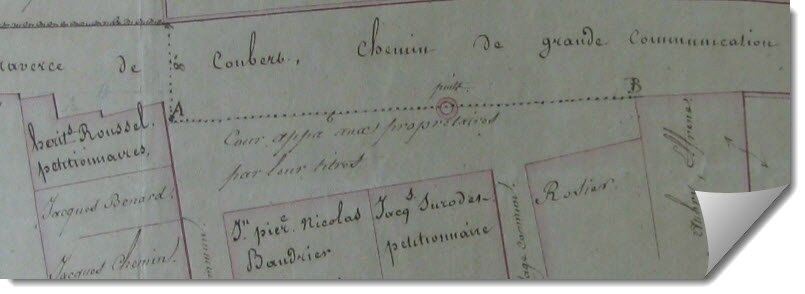 traverse de Coubert, Chemin de grande Communication
puits
A
B
Cour appt aux propriétaires
par leur titres
herits. Roussel.
petitionnaires.
Jacques Benard.
Jacques Chemin.
Jn. pierre. Nicolas
Baudrier
Jacqs. Surodes.
petitionnaire
Rosier.